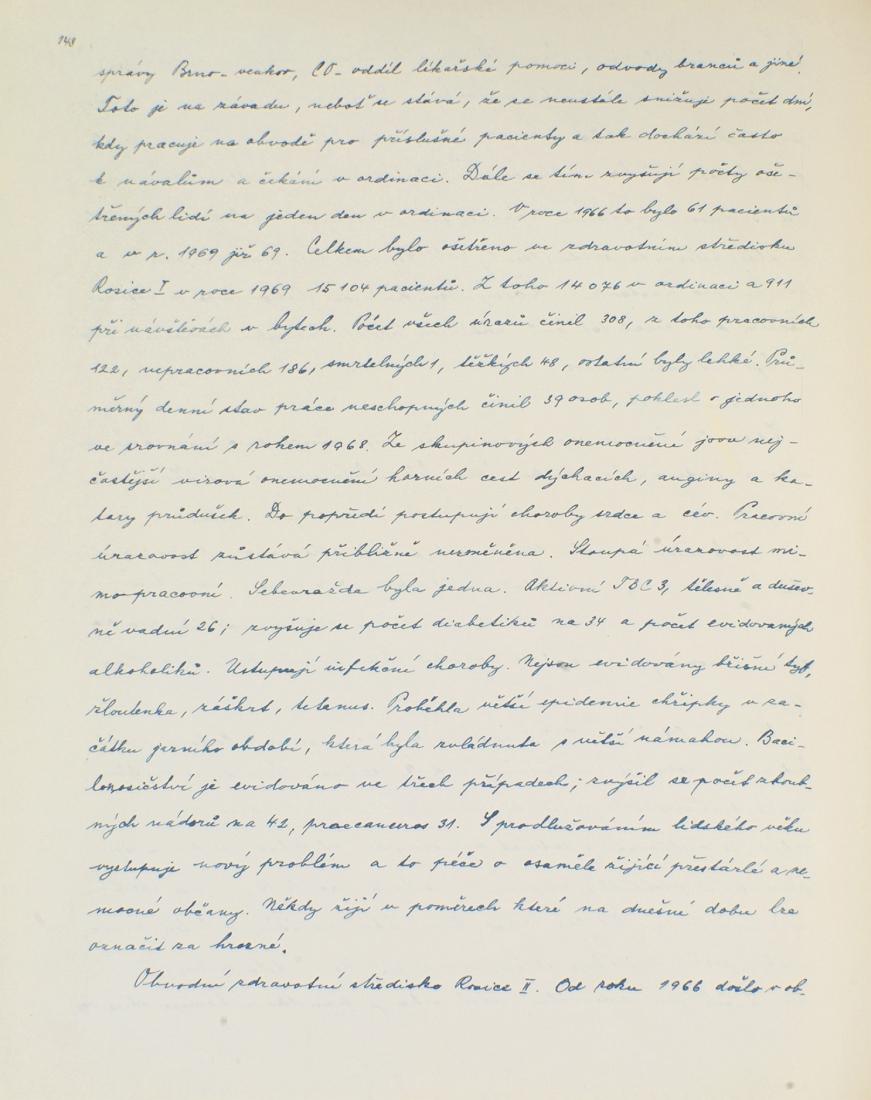 148
správy Brno-venkov, CO-oddíl lékařské pomoci, odvody branců a jiné.
Toto je na závadu, neboť se stává, že se neustále snižuje počet dní,
kdy pracuje na obvodě pro příslušné pacienty a tak dochází často
k návalům a čekání v ordinaci. Dále se tím zvyšují počty oše-
třených lidí na jeden den v ordinaci. V roce 1966 to bylo 61 pacientů
a v r. 1969 již 69. Celkem bylo ošetřeno ve zdravotním středisku
Rosice I v roce 1969 15 104 pacientů. Z toho 14 076 v ordinaci a 911
při návštěvách v bytech. Počet všech úrazů činil 308, z toho pracovních
122, nepracovních 186, smrtelných 1, těžkých 48, ostatní byly lehké. Prů-
měrný denní stav práce neschopných činil 39 osob, pohlesl o jednoho
ve srovnání s rokem 1968. Ze skupinových onemocnění jsou nej-
častější virová onemocnění horních cest dýchacích, anginy a ka-
tary průdušek. Do popředí postupují choroby srdce a cév. Pracovní
úrazovost zůstává přibližně nezměněna. Stoupá úrazovost mi-
mopracovní. Sebevražda byla jedna. Aktivní TBC 3, tělesně a dušev-
ně vadní 26; zvyšuje se počet diabetiků na 34 a počet evidovaných
alkoholiků. Ustupují infekční choroby. Nejsou evidovány břišní tyf,
žloutenka, záškrt, tetanus. Proběhla větší epidemie chřipky v za-
čátku jarního období, která byla zvládnuta s větší námahou. Baci-
lonosičství je evidováno ve třech případech; zvýšil se počet zhoub-
ných nádorů na 42, praecanceros 31. S prodlužováním lidského věku
vystupuje nový problém a to péče o osaměle žijící přestárlé a ne-
mocné občany. Někdy žijí v poměrech které na dnešní dobu lze
označit za hrozné.
Obvodní zdravotní středisko Rosice II. Od roku 1966 došlo v ob-